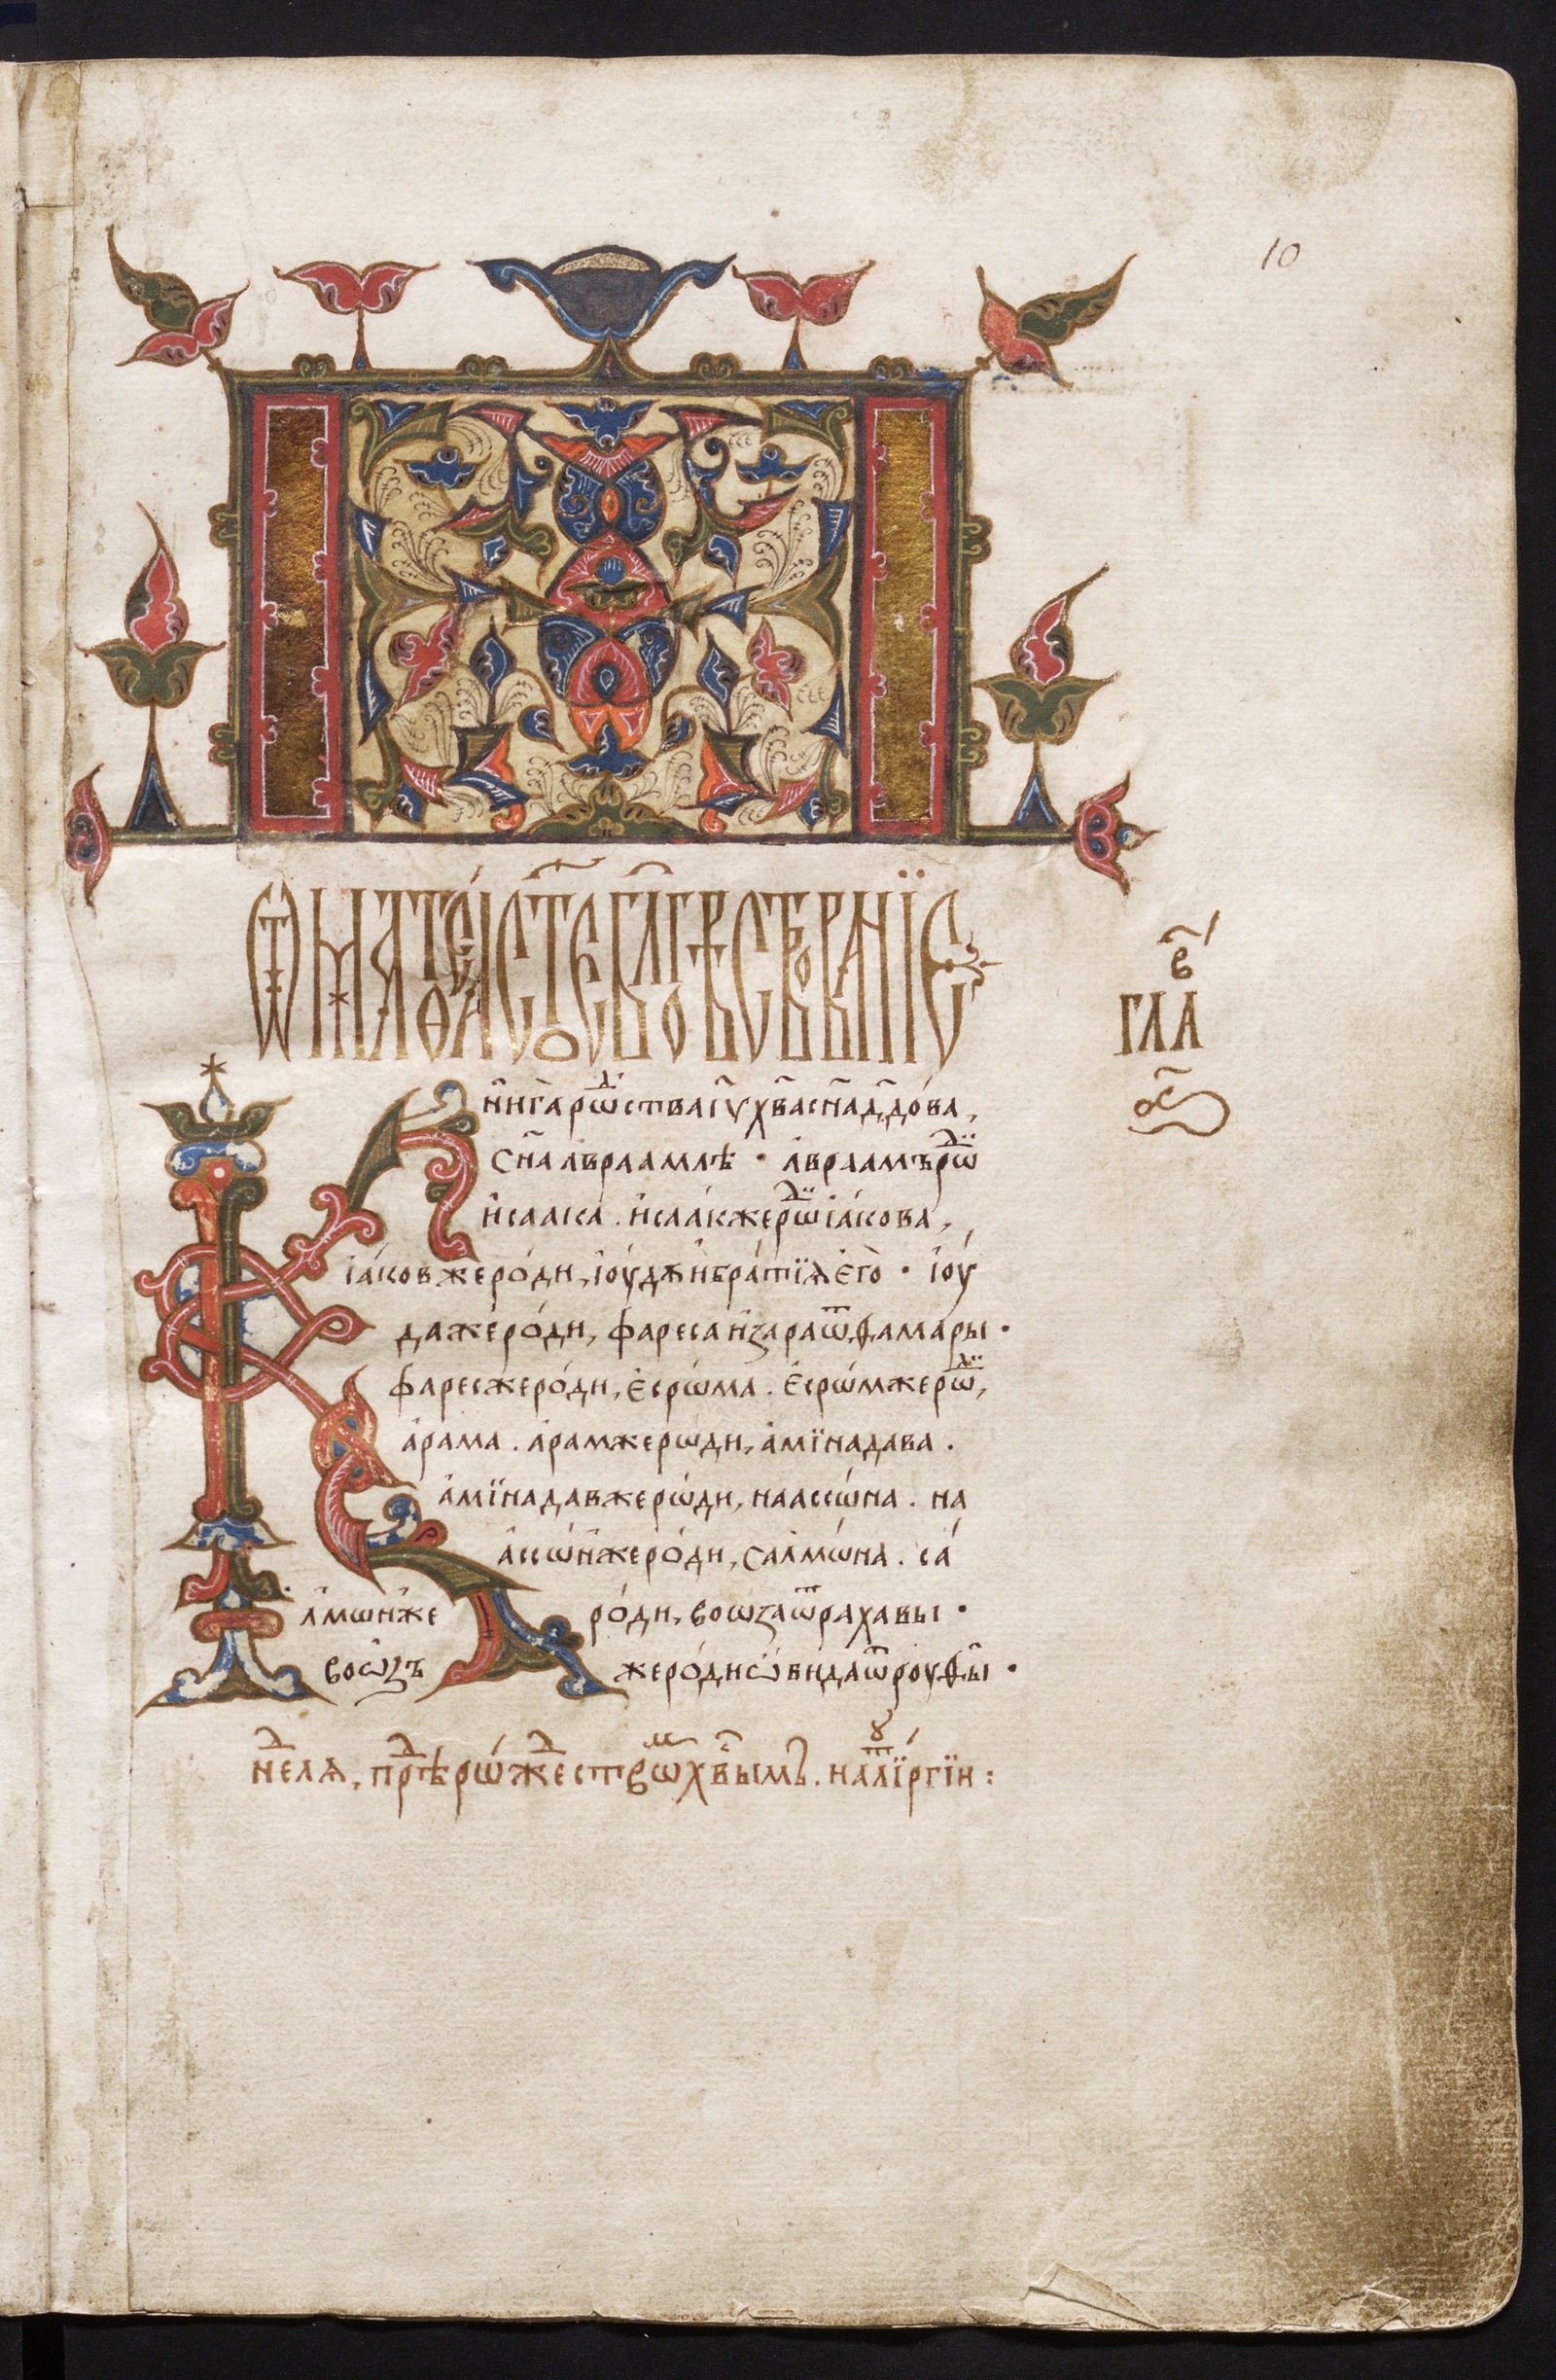 10
Ѿ МАТѲЕА СТ҃ОЕ БЛ҃ГОВѢСТВОВАНЇЕ
в҃
ГЛА
а҃
К
ни́га рѡⷣства і҆у҃ х҃ва сн҃а дв҃дова,
сн҃а авраамлѣ · авраамъ рѡⷣ
и҆саака . и҆саак же рѡⷣ і҆а́кова,
і҆а́ков же ро́ди, і҆оу́дѫ и҆ бра́тїѧ є҆го̀ · і҆оу́
да же ро́ди, фареса и҆ зара ѿ ѳамары ·
фарес же ро́ди, є҆срѡ́ма . є҆срѡ́м же рѡⷣ,
а҆рама . а҆рам же рѡди, а҆мїнадава .
а҆мїнадав же рѡ́ди, наассѡ́на . на
а҆ссѡ́н же ро́ди, салмѡ́на . са́
лмѡн же ро́ди, воѡза ѿ рахавы ·
воѡ́зъ же ро́ди ѡ҆вида ѿ роуѳы ·
неⷣлѧ, преⷣ рѡ́жⷣествѡⷨ хв҃ымъ . на лїтꙋргїи :